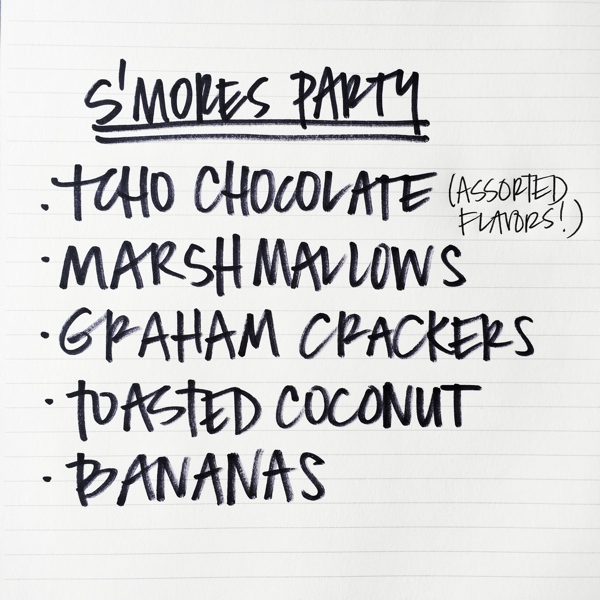 S'MORES PARTY
· TCHO CHOCOLATE (ASSORTED
FLAVORS!)
· MARSHMALLOWS
· GRAHAM CRACKERS
· TOASTED COCONUT
· BANANAS